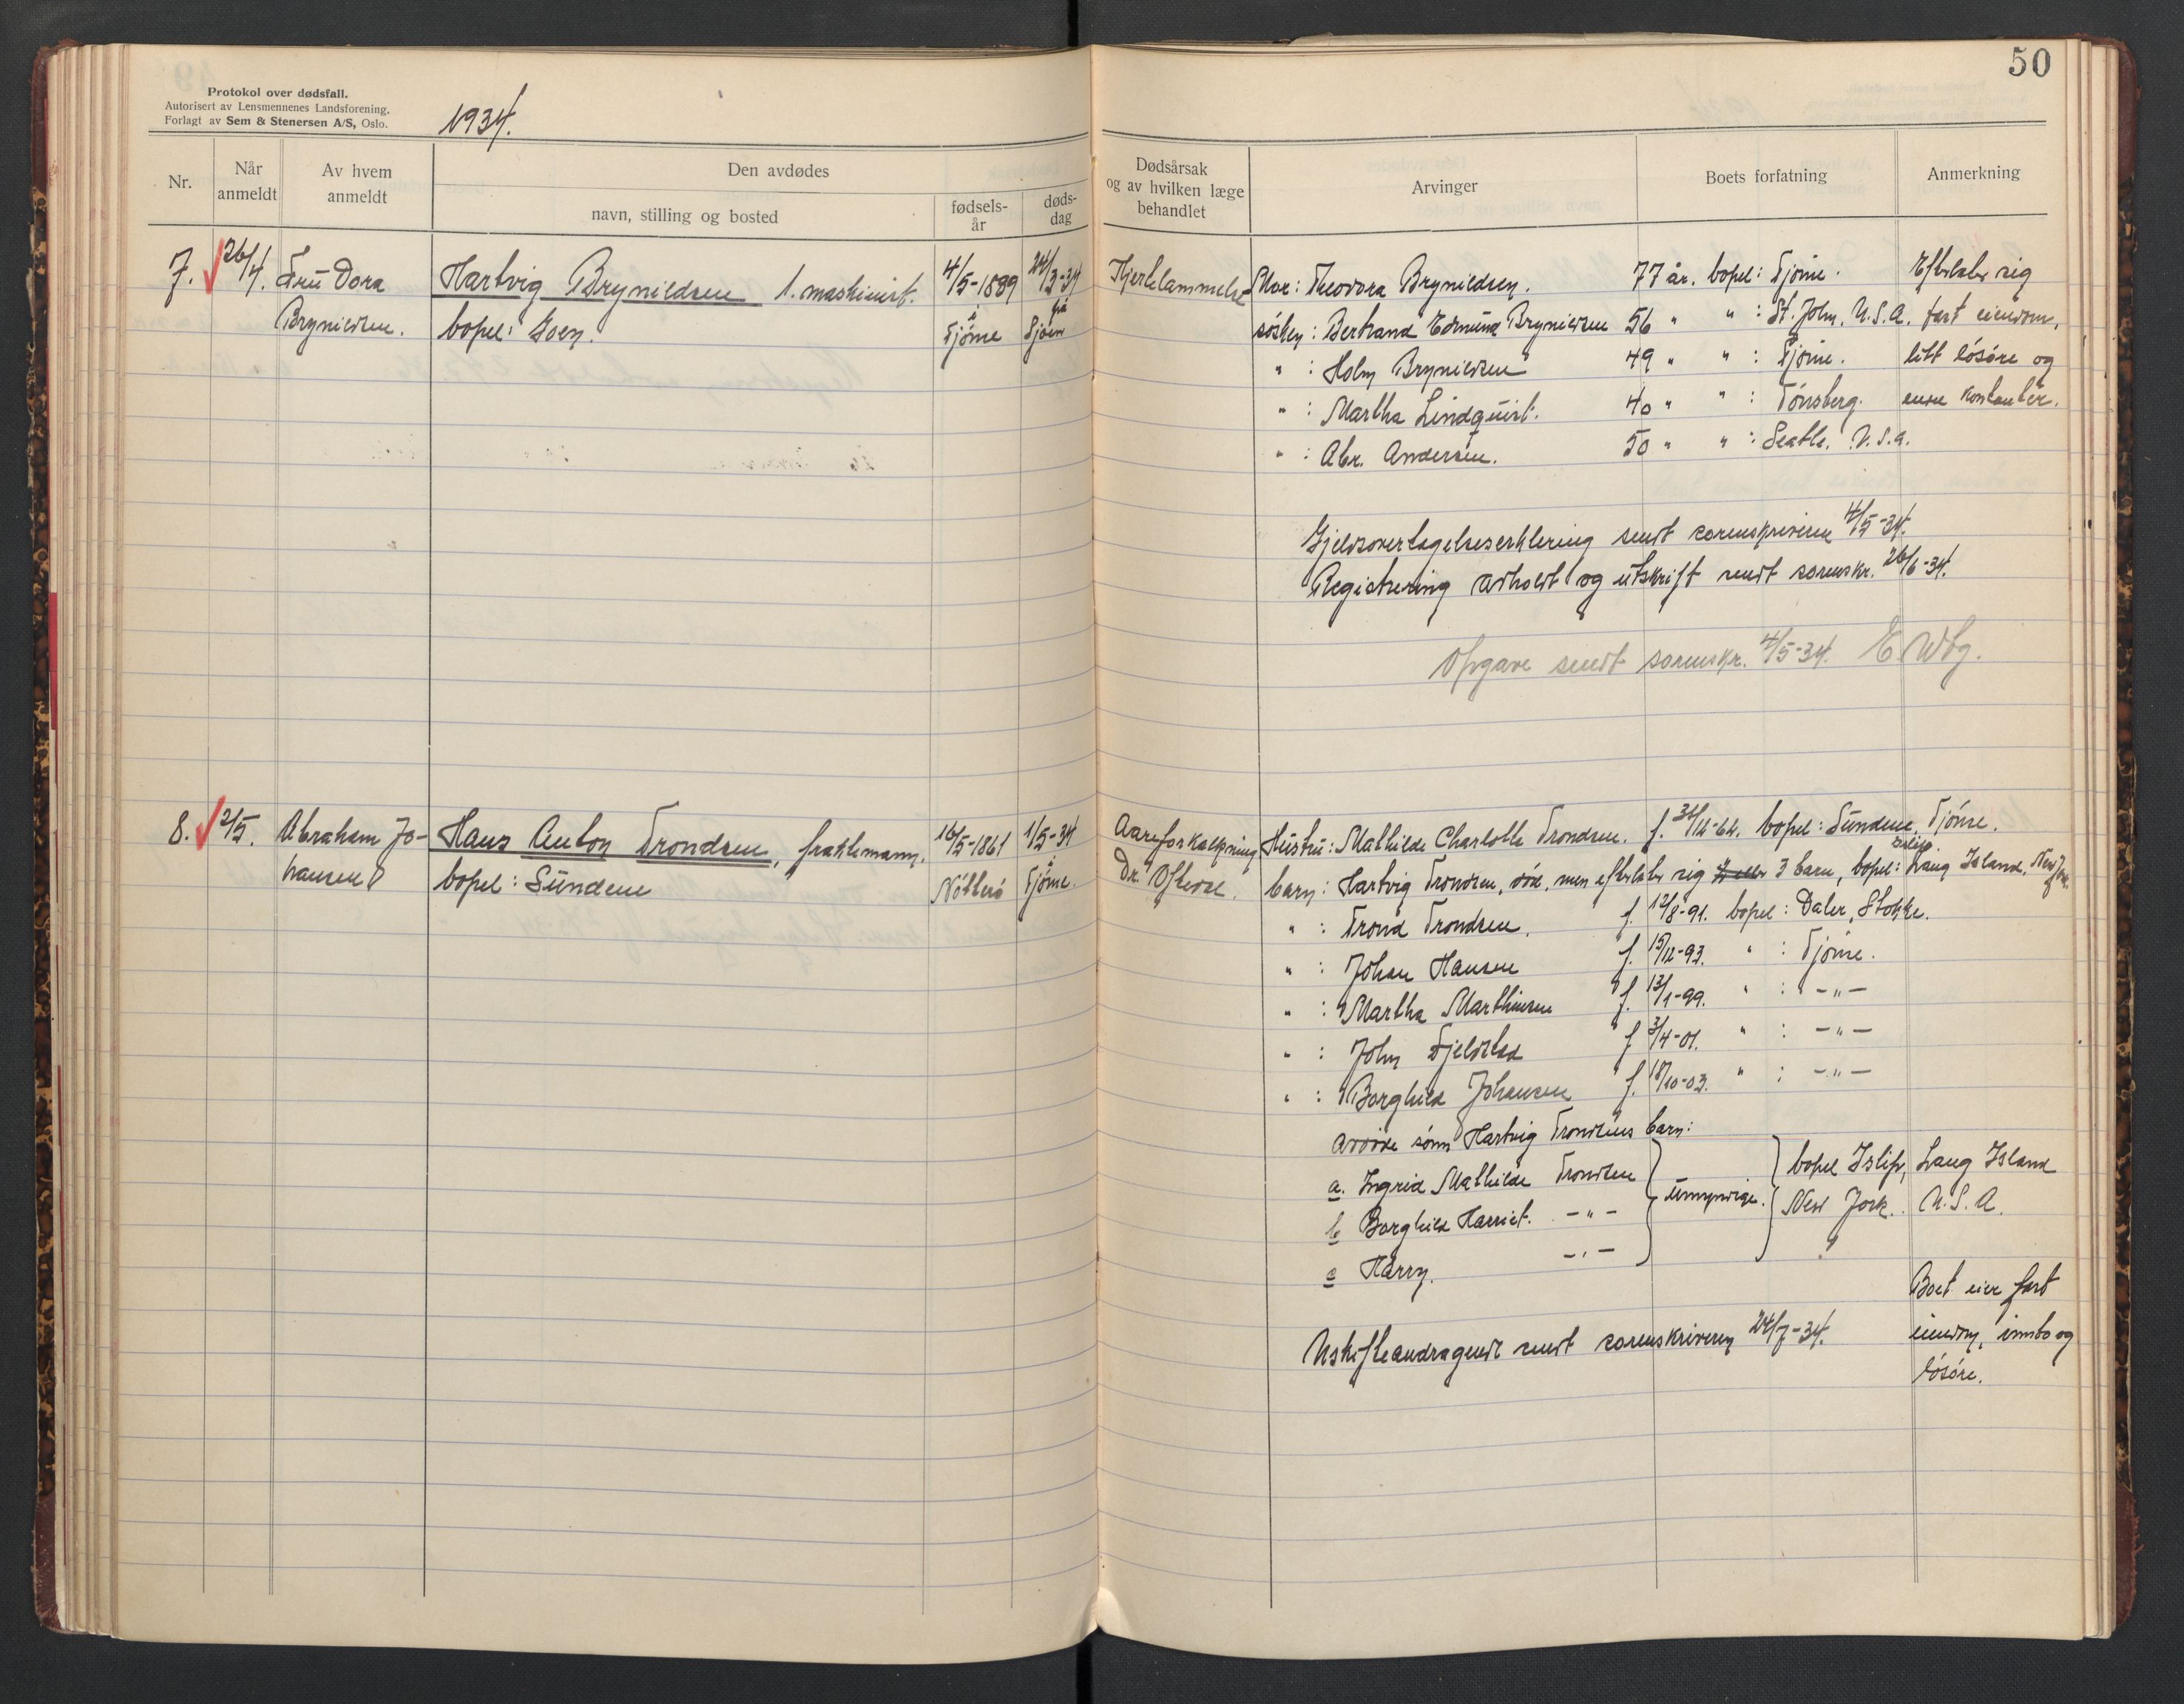 50
Protokol over dødsfall.
Autorisert av Lensmennenes Landsforening.
Forlagt av Sem & Stenersen A/S, Oslo.
1934.
Nr.
Når anmeldt
Av hvem anmeldt
Den avdødes
navn, stilling og bosted
fødsels-år
døds-dag
Dødsårsak og av hvilken læge behandlet
Arvinger
Boets forfatning
Anmerkning
7. 26/4. Fru Dora Hartvig Brynildsen 1. maskinist. 4/5-1889 24/3-34
Brynildsen. bopel: Goen. i Tjöme på Sjøen
Hjertelammelse Mor: Theodora Brynildsen. 77 år. bopel: Tjöme. Efterlater sig
søsken: Bertrand Edmund Brynildsen 56 " " : St. John, U.S.A. fast eiendom,
" : Holm Brynildsen 49 " " : Tjöme. litt lösöre og
" : Martha Lindquist. 40 " " : Tönsberg. endel kontanter.
" : Abr. Andersen. 50 " " : Seatle. U.S.A.
Gjeldsovertagelseserklering sendt sorenskriveren 4/5-34.
Registrering avholdt og utskrift sendt sorenskr. 26/6-34.
Opgave sendt sorenskr. 4/5-34. E. Wbg.
8. 2/5. Abraham Jo- Hans Anton Trondsen, fraktemann. 16/5-1861 1/5-34
hansen bopel: Sundene Nötterö i Tjöme.
Aareforkalkning Hustru: Mathilde Charlotte Trondsen. f. 31/12-64. bopel: Sundene, Tjöme.
Dr. Oftedal. barn: Hartvig Trondsen, död, men efterlater sig 3 barn, bopel: Islip Lang Island, New Jork.
" : Trond Trondsen. f. 12/8-91. bopel: Daler, Stokke.
" : Johan Hansen f. 15/12-93. " : Tjöme.
" : Martha Marthinsen f. 13/1-99. " : -"-
" : John Fjeldstad f. 3/4-01. " : -"-
" : Borghild Johansen f. 18/10-03. " : -"-
Avdöde sönn Hartvig Trondsens barn:
a. Ingrid Mathilde Trondsen } umyndige. } bopel Islip, Lang Island
b Borghild Harriet. -"- New Jork. U.S.A.
c Harry. -"-
Boet eier fast
Uskifteandragende sendt sorenskriveren 24/7-34. eiendom, innbo og
lösöre.